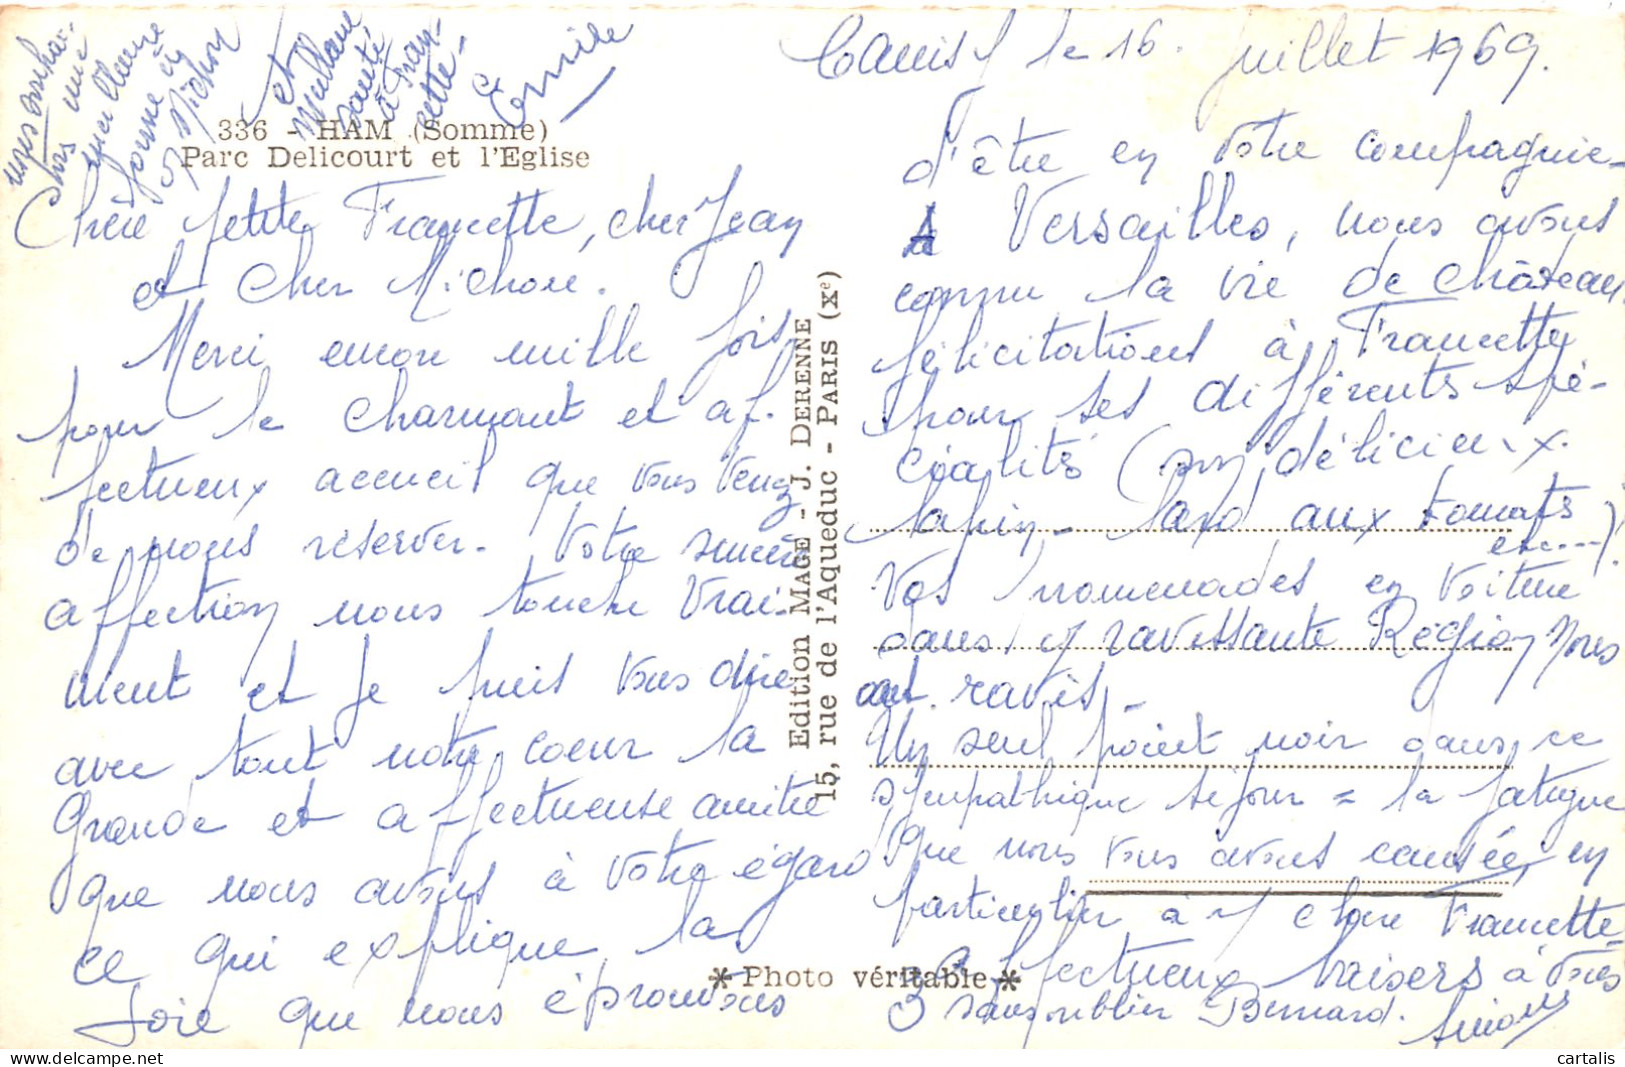 Canisy le 16 juillet 1969.
336 - HAM (Somme)
Parc Delicourt et l'Eglise
Chère petite Francette, cher Jean
et cher Michou.
Merci encore mille fois
pour le charmant et af-
fectueux accueil que vous venez
de nous réserver. Votre sincère
affection nous touche vrai-
ment et je puis vous dire
avec tout notre coeur la
grande et affectueuse amitié
que nous avons à votre égard
ce qui explique la
joie que nous éprouvons
d'être en votre compagnie -
A Versailles, nous avons
connu la vie de château
félicitations à Francette
pour ses différents spé-
cialités (son délicieux
lapin - lard aux tomates
etc...)
Vos promenades en voiture
dans cette ravissante Région nous
ont ravis -
Un seul point noir dans ce
sympathique séjour = la fatigue
que nous vous avons causée, en
particulier à chère Francette -
Affectueux baisers à vous
3 sans oublier Bernard. Simone
nous souhai-
tons une
meilleure
forme à
Michou
et
meilleure
santé
à Fran-
cette -
Emile
Edition MAGE - J. DERENNE
15, rue de l'Aqueduc - PARIS (Xe)
* Photo véritable *
cartalis